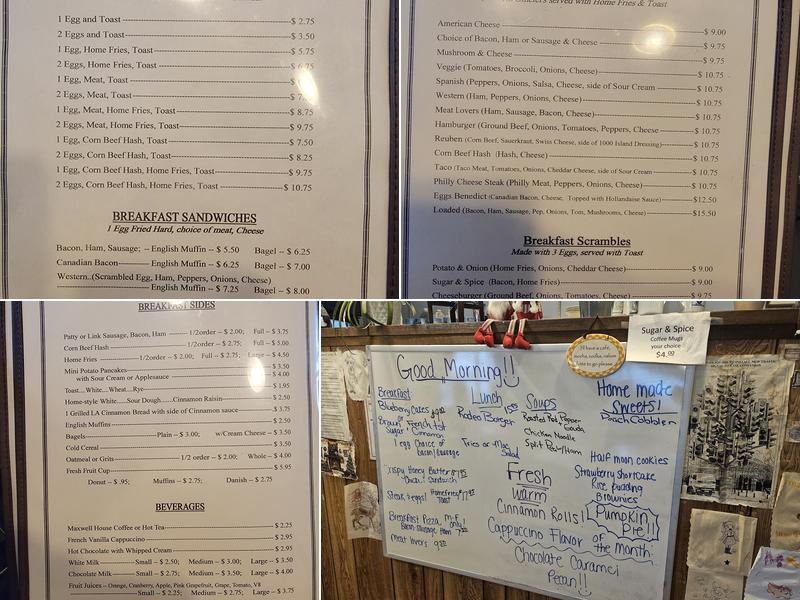 1 Egg and Toast $ 2.75
2 Eggs and Toast $ 3.50
1 Egg, Home Fries, Toast $ 5.75
2 Eggs, Home Fries, Toast $
1 Egg, Meat, Toast $
2 Eggs, Meat, Toast $
1 Egg, Meat, Home Fries, Toast $ 8.75
2 Eggs, Meat, Home Fries, Toast $ 9.75
1 Egg, Corn Beef Hash, Toast $ 7.50
2 Eggs, Corn Beef Hash, Toast $ 8.25
1 Egg, Corn Beef Hash, Home Fries, Toast $ 9.75
2 Eggs, Corn Beef Hash, Home Fries, Toast $ 10.75
BREAKFAST SANDWICHES
1 Egg Fried Hard, choice of meat, Cheese
Bacon, Ham, Sausage; -- English Muffin -- $ 5.50 Bagel -- $ 6.25
Canadian Bacon English Muffin -- $ 6.25 Bagel -- $ 7.00
Western..(Scrambled Egg, Ham, Peppers, Onions, Cheese)
English Muffin -- $ 7.25 Bagel -- $ 8.00
served with Home Fries & Toast
American Cheese $ 9.00
Choice of Bacon, Ham or Sausage & Cheese $ 9.75
Mushroom & Cheese $ 9.75
Veggie (Tomatoes, Broccoli, Onions, Cheese) $ 10.75
Spanish (Peppers, Onions, Salsa, Cheese, side of Sour Cream $ 10.75
Western (Ham, Peppers, Onions, Cheese) $ 10.75
Meat Lovers (Ham, Sausage, Bacon, Cheese) $ 10.75
Hamburger (Ground Beef, Onions, Tomatoes, Peppers, Cheese $ 10.75
Reuben (Corn Beef, Sauerkraut, Swiss Cheese, side of 1000 Island Dressing) $ 10.75
Corn Beef Hash (Hash, Cheese) $ 10.75
Taco (Taco Meat, Tomatoes, Onions, Cheddar Cheese, side of Sour Cream $ 10.75
Philly Cheese Steak (Philly Meat, Peppers, Onions, Cheese) $ 10.75
Eggs Benedict (Canadian Bacon, Cheese, Topped with Hollandaise Sauce) $12.50
Loaded (Bacon, Ham, Sausage, Pep, Onions, Tom, Mushrooms, Cheese) $15.50
Breakfast Scrambles
Made with 3 Eggs, served with Toast
Potato & Onion (Home Fries, Onions, Cheddar Cheese) $ 9.00
Sugar & Spice (Bacon, Home Fries) $ 9.00
Cheeseburger (Ground Beef, Onions, Tomatoes, Cheese) $ 9.75
BREAKFAST SIDES
Patty or Link Sausage, Bacon, Ham 1/2order -- $ 2.00; Full -- $ 3.75
Corn Beef Hash 1/2order -- $ 2.75; Full -- $ 5.00
Home Fries 1/2order -- $ 2.00; Full -- $ 2.75; Large -- $ 4.50
Mini Potato Pancakes $ 3.50
with Sour Cream or Applesauce $ 4.00
Toast....White....Wheat....Rye $ 1.95
Home-style White.....Sour Dough......Cinnamon Raisin $ 2.50
1 Grilled LA Cinnamon Bread with side of Cinnamon sauce $ 3.75
English Muffins $ 2.50
Bagels Plain -- $ 3.00; w/Cream Cheese -- $ 3.50
Cold Cereal $ 3.50
Oatmeal or Grits 1/2 order -- $ 2.00; Whole -- $ 4.00
Fresh Fruit Cup $ 5.95
Donut -- $ .95; Muffins -- $ 2.75; Danish -- $ 2.75
BEVERAGES
Maxwell House Coffee or Hot Tea $ 2.25
French Vanilla Cappuccino $ 2.95
Hot Chocolate with Whipped Cream $ 2.95
White Milk Small -- $ 2.50; Medium -- $ 3.00; Large -- $ 3.50
Chocolate Milk Small -- $ 2.75; Medium -- $ 3.50; Large -- $ 4.00
Fruit Juices -- Orange, Cranberry, Apple, Pink Grapefruit, Grape, Tomato, V8
Small -- $ 2.25; Medium -- $ 2.75; Large -- $ 3.75
Sugar & Spice
Coffee Mugs
your choice
$4.00
Good Morning!!
Breakfast
Blueberry Cakes
or
Brown Sugar Cinnamon French Tst
1 egg choice of
bacon/sausage
Crispy Honey Butter
Chick. Sandwich
Steak & eggs! Homefries Toast
Breakfast Pizza M-F only!
Bacon Sausage Ham
Meat lovers
Lunch
Rodeo Burger
Fries or Mac Salad
Soups
Roasted Red Pepper
Gouda
Chicken Noodle
Split Pea/Ham
Home made
Sweets!
Peach Cobbler
Half moon cookies
Strawberry Shortcake
Rice pudding
Brownies
Pumpkin
Pie!!
Fresh
Warm
Cinnamon Rolls!
Cappuccino Flavor of the Month:
Chocolate Caramel
Pecan!!